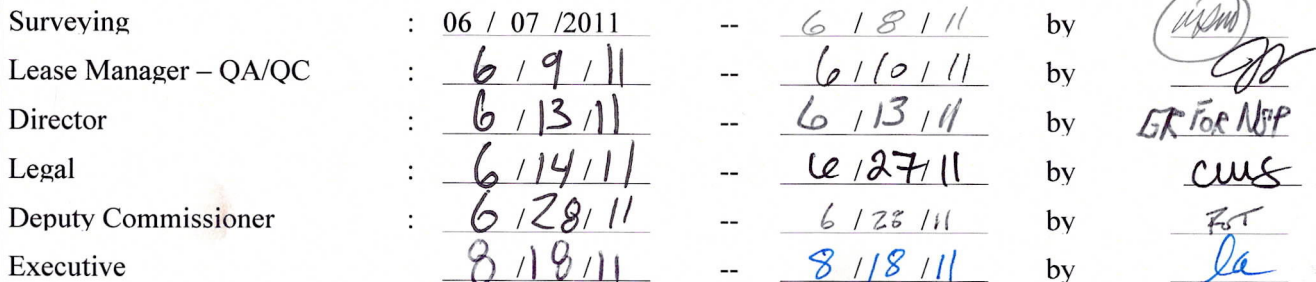 Surveying : 06 / 07 /2011 -- 6 / 8 / 11 by
Lease Manager – QA/QC : 6 / 9 / 11 -- 6 / 10 / 11 by
Director : 6 / 13 / 11 -- 6 / 13 / 11 by GR FOR NSP
Legal : 6 / 14 / 11 -- 6 / 27 / 11 by cws
Deputy Commissioner : 6 / 28 / 11 -- 6 / 28 / 11 by
Executive : 8 / 18 / 11 -- 8 / 18 / 11 by la